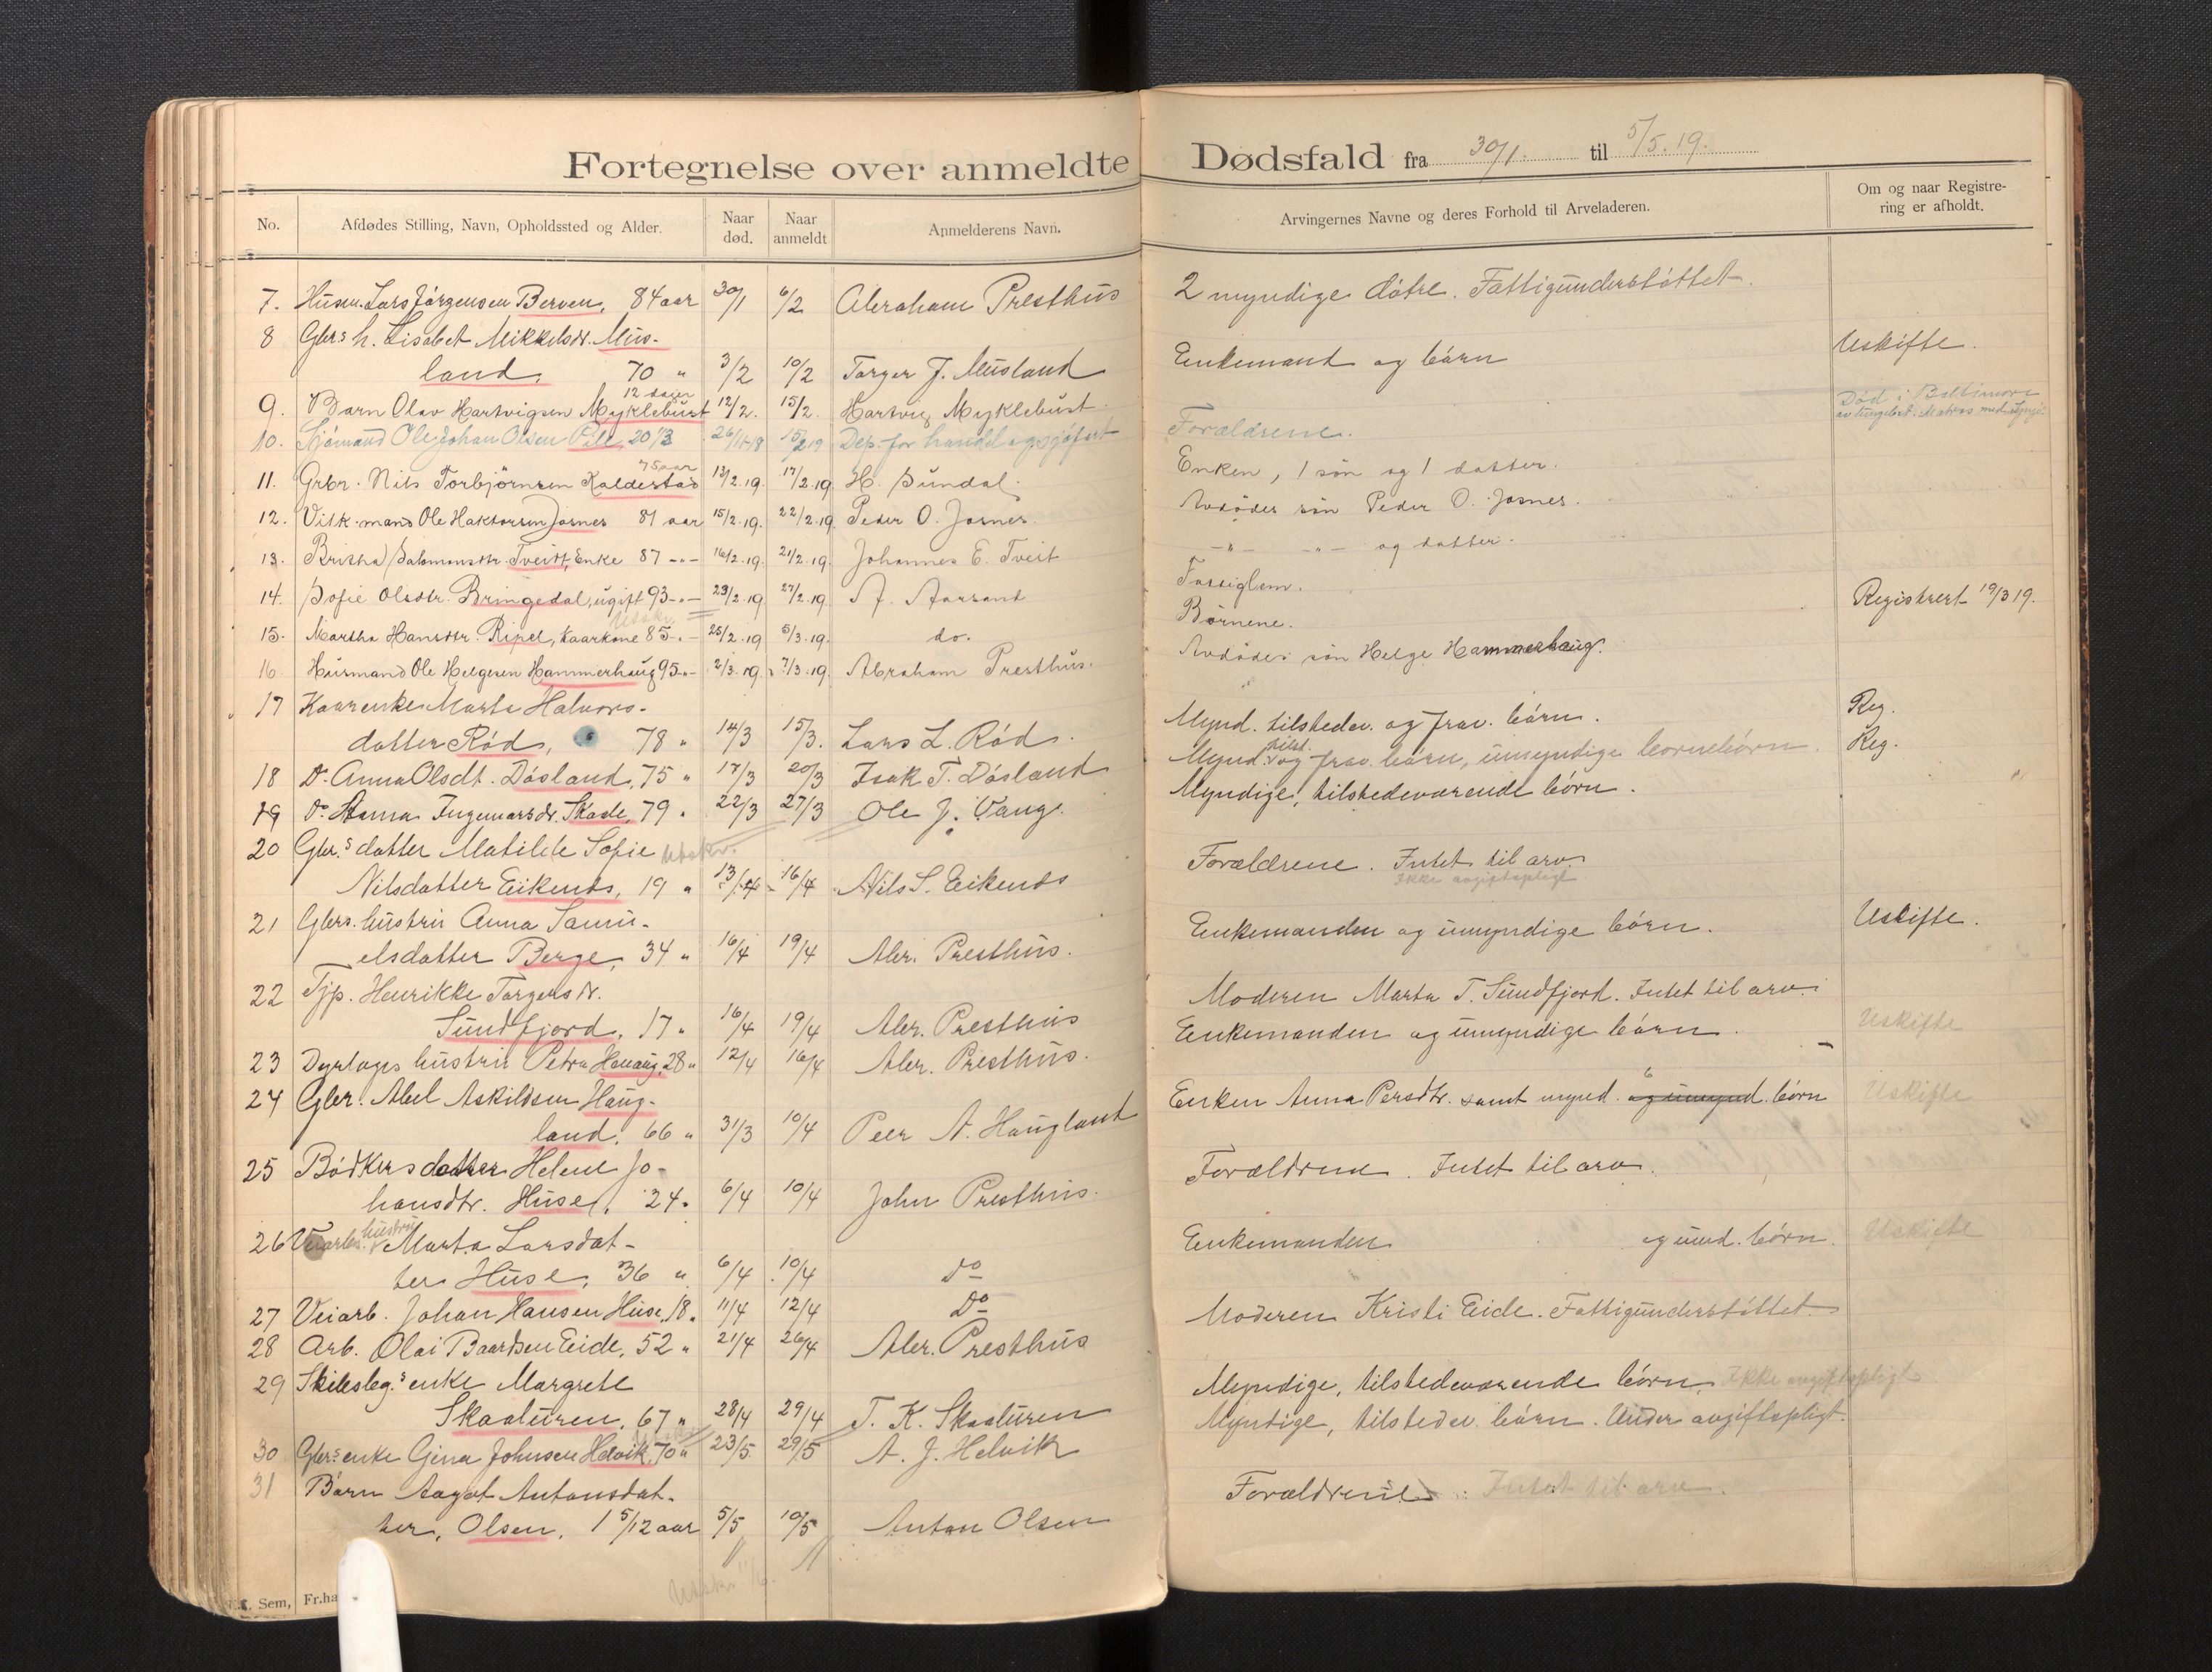 Fortegnelse over anmeldte Dødsfald fra 30/1. til 5/5. 19.
No. Afdødes Stilling, Navn, Opholdssted og Alder. Naar død. Naar anmeldt Anmelderens Navn. Arvingernes Navne og deres Forhold til Arveladeren. Om og naar Registrering er afholdt.
7. Husm. Lars Jørgensen Berven, 84 aar 30/1 6/2 Abraham Presthus 2 myndige døtre. Fattigunderstøttet.
8 Gbrs h. Lisabet Mikkelsdr. Mus-
land, 70 " 3/2 10/2 Torger J. Musland Enkemand og børn Uskifte.
12 dager
9. Barn Olav Hartvigsen Myklebust 12/2. 15/2. Hartvig Myklebust Forældrene.
10. Sjømand Ole Johan Olsen 20 1/3 26/11-18 15/2 19 Dep. for handel og sjøfart Død i Baltimore
75 aar
11. Grbr. Nils Torbjörnsen Kaldestad 13/2.19. 17/2.19. H. Sundal. Enken, 1 søn og 1 datter.
12. Ole Haktorsen Josnes 81 aar 15/2.19. 22/2.19. Peder O. Josnes. Avdødes søn Peder O. Josnes.
13. Britha Salomonsdtr. Tveitt, Enke 87 -"- 16/2.19. 21/2.19. Johannes E. Tveit -"- -"- og datter.
14. Sofie Olsdtr. Bringedal, ugift 93 -"- 23/2.19 27/2.19. A. Aarsand Fattiglem.
15. Martha Hansdtr. Ripel, kaarkone 85 -"- 25/2.19 5/3.19. do. Børnene. Registrert 19/3 19.
16. Husmand Ole Helgesen Hammerhaug 95 -"- 2/3.19. 7/3.19. Abraham Presthus. Avdødes søn Helge Hammerhaug.
17 Kaarenke Marta Halvors-
datter Rød, 78 " 14/3 15/3. Lars L. Rød. Mynd. tilstedev. og frav. børn. Reg.
18 Do Anna Olsdt. Døsland, 75 " 17/3 20/3 Isak T. Døsland Mynd. tilst. og frav. børn, umyndige barnebørn. Reg.
19 Do Anna Ingemarsdr. Skaale, 79 " 22/3 27/3 Ole J. Vange. Myndige, tilstedeværende børn.
20 Gbr.s datter Matilde Sofie Utskr.
Nilsdatter Eikenes, 19 " 13/4 16/4 Nils S. Eikenes Forældrene. Intet til arv.
Ikke avgiftspligt
21 Gbrs. hustru Anna Samu-
elsdatter Berge, 34 " 16/4 19/4 Abr. Presthus. Enkemanden og umyndige børn. Uskifte.
22 Tjp. Henrikke Torgersdr.
Sundfjord, 17 " 16/4 19/4 Abr. Presthus Moderen Marta T. Sundfjord. Intet til arv.
23 hustru Petra 28 " 12/4 16/4 Abr. Presthus. Enkemanden og umyndige børn. Uskifte
24 Gbr. Abel Askildsen Haug-
land, 66 " 31/3 10/4 Peer A. Haugland Enken Anna Persdtr. samt mynd. og umynd. børn Uskifte
25 Bødkers datter Helene Jo-
hansdtr. Huse, 24 " 6/4 10/4 John Presthus. Forældrene. Intet til arv.
26 Veiarb. hustru Marta Larsdat-
ter Huse, 36 " 6/4 10/4 Do Enkemanden og umd. børn. Uskifte
27 Veiarb. Johan Hansen Huse, 18 " 11/4 12/4 Do
28 Arb. Olai Baardsen Eide, 52 " 21/4 26/4 Abr. Presthus Moderen Kristi Eide. Fattigunderstøttet.
29 enke Margrete
Skaaluren, 67 " 28/4 29/4 T. K. Skaaluren Myndige, tilstedeværende børn. Ikke avgiftspligt
30 Gbrs enke Gina Johnsen Helvik, 70 " 23/5. 29/5 A. J. Helvik Myndige, tilstedev. børn. Under avgiftspligt.
31 Barn Aagot Antonsdat-
ter, Olsen, 1 5/12 aar 5/5 10/5 Anton Olsen Forældrene. Intet til arv.
Sem, Fr.ha